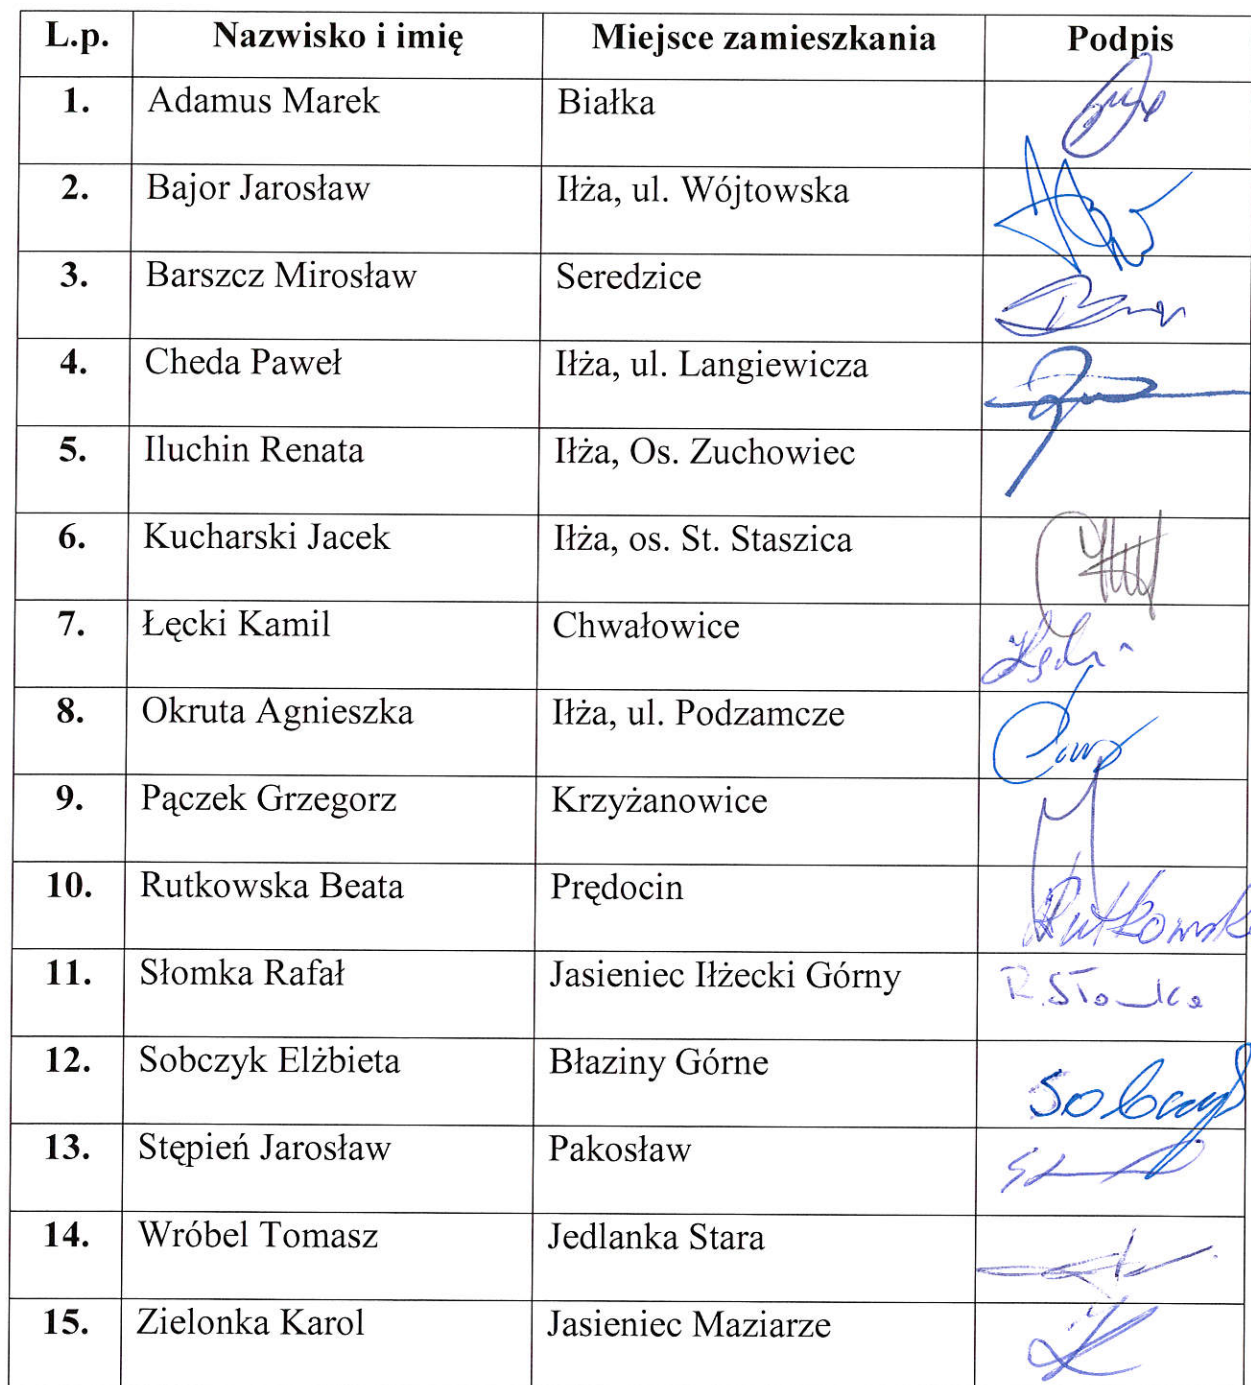 L.p. Nazwisko i imię Miejsce zamieszkania Podpis
1. Adamus Marek Białka
2. Bajor Jarosław Iłża, ul. Wójtowska
3. Barszcz Mirosław Seredzice
4. Cheda Paweł Iłża, ul. Langiewicza
5. Iluchin Renata Iłża, Os. Zuchowiec
6. Kucharski Jacek Iłża, os. St. Staszica
7. Łęcki Kamil Chwałowice
8. Okruta Agnieszka Iłża, ul. Podzamcze
9. Pączek Grzegorz Krzyżanowice
10. Rutkowska Beata Prędocin Rutkowsk
11. Słomka Rafał Jasieniec Iłżecki Górny R. Słomka
12. Sobczyk Elżbieta Błaziny Górne Sobczyk
13. Stępień Jarosław Pakosław
14. Wróbel Tomasz Jedlanka Stara
15. Zielonka Karol Jasieniec Maziarze